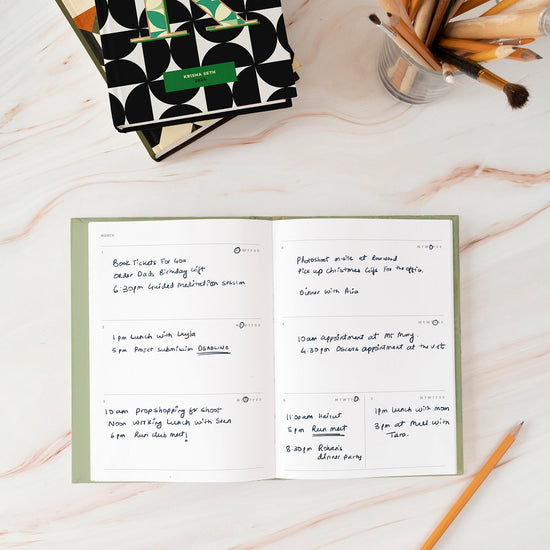 K
KRISHA SETH
MONTH
1
M T W T F S S
Book Tickets For Goa
Order Dads Birthday Gift
6:30pm Guided Meditation Session
2
M T W T F S S
1 pm Lunch with Layla
5 pm Project submission DEADLINE
3
M T W T F S S
10 am Prop shopping for shoot
Noon Working Lunch with Sean
6 pm Run club meet!
4
M T W T F S S
Photoshoot on-site at
Pick up Christmas Gifts For the office.
Dinner with Mia
5
M T W T F S S
10am appointment at Mr
4:30 pm Oscars appointment at the vet
6
M T W T F S S
11:00am Haircut
5 pm Run meet
8:30pm Rohan's
dinner party
7
M T W T F S S
1pm Lunch with mom
3pm at Mall with
Tara.